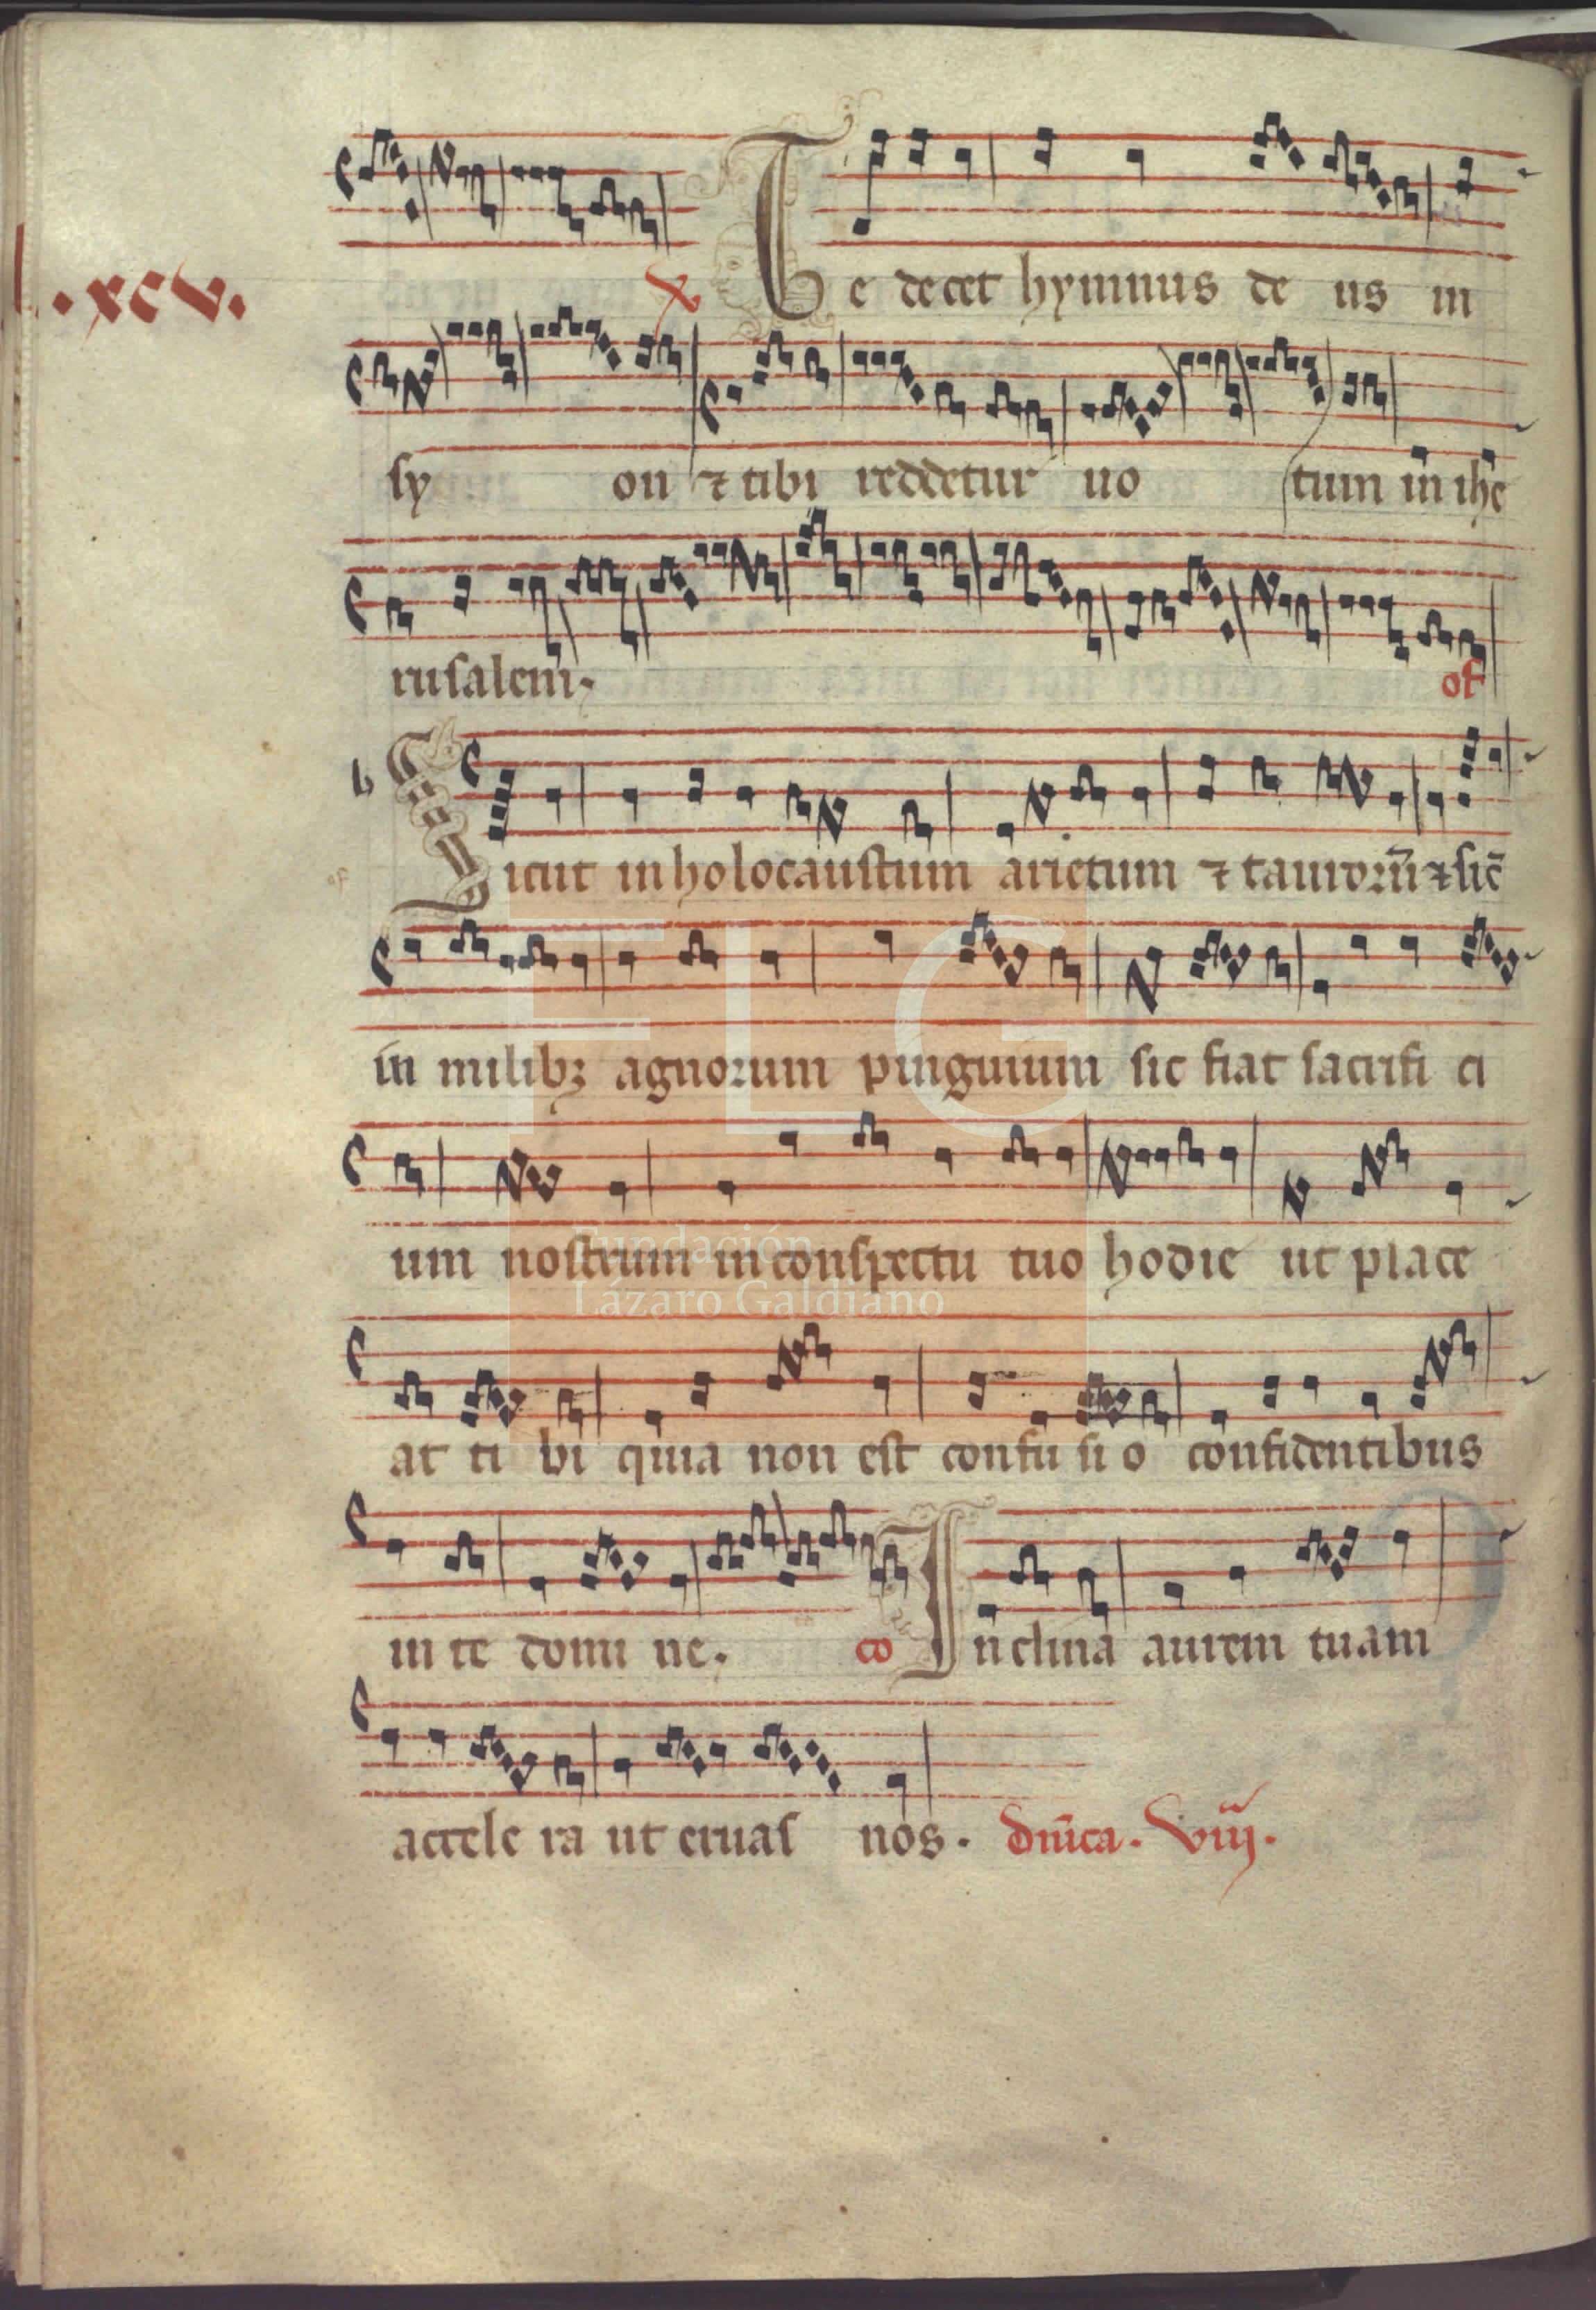 .xcv.
℣ Te decet hymnus de us in
sy on ⁊ tibi reddetur uo tum in ihe
rusalem. of
Sicut in holocaustum arietum ⁊ taurorũ ⁊ sic̃
in milibꝫ agnorum pinguium sic fiat sacrifi ci
um nostrum in conspectu tuo hodie ut place
at ti bi quia non est confu si o confidentibus
in te domi ne. co Inclina aurem tuam
accele ra ut eruas nos. dñica. viii.
FLG
Fundación
Lázaro Galdiano